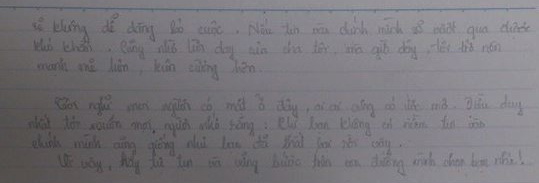 sẽ không dễ dàng bỏ cuộc. Nếu tin vào chính mình sẽ vượt qua được
khó khăn. Cũng nhờ lời dạy của cha tôi, mà giờ đây, tôi trở nên
mạnh mẽ hơn, kiên cường hơn.
Tôi nghĩ mọi người có mặt ở đây, ai ai cũng có ước mơ. Điều duy
nhất tôi muốn mọi người nhớ rằng: Khi bạn không có niềm tin vào
chính mình cũng giống như bạn đã thất bại rồi vậy.
Vì vậy, hãy tự tin và vững bước trên con đường mình chọn bạn nhé!